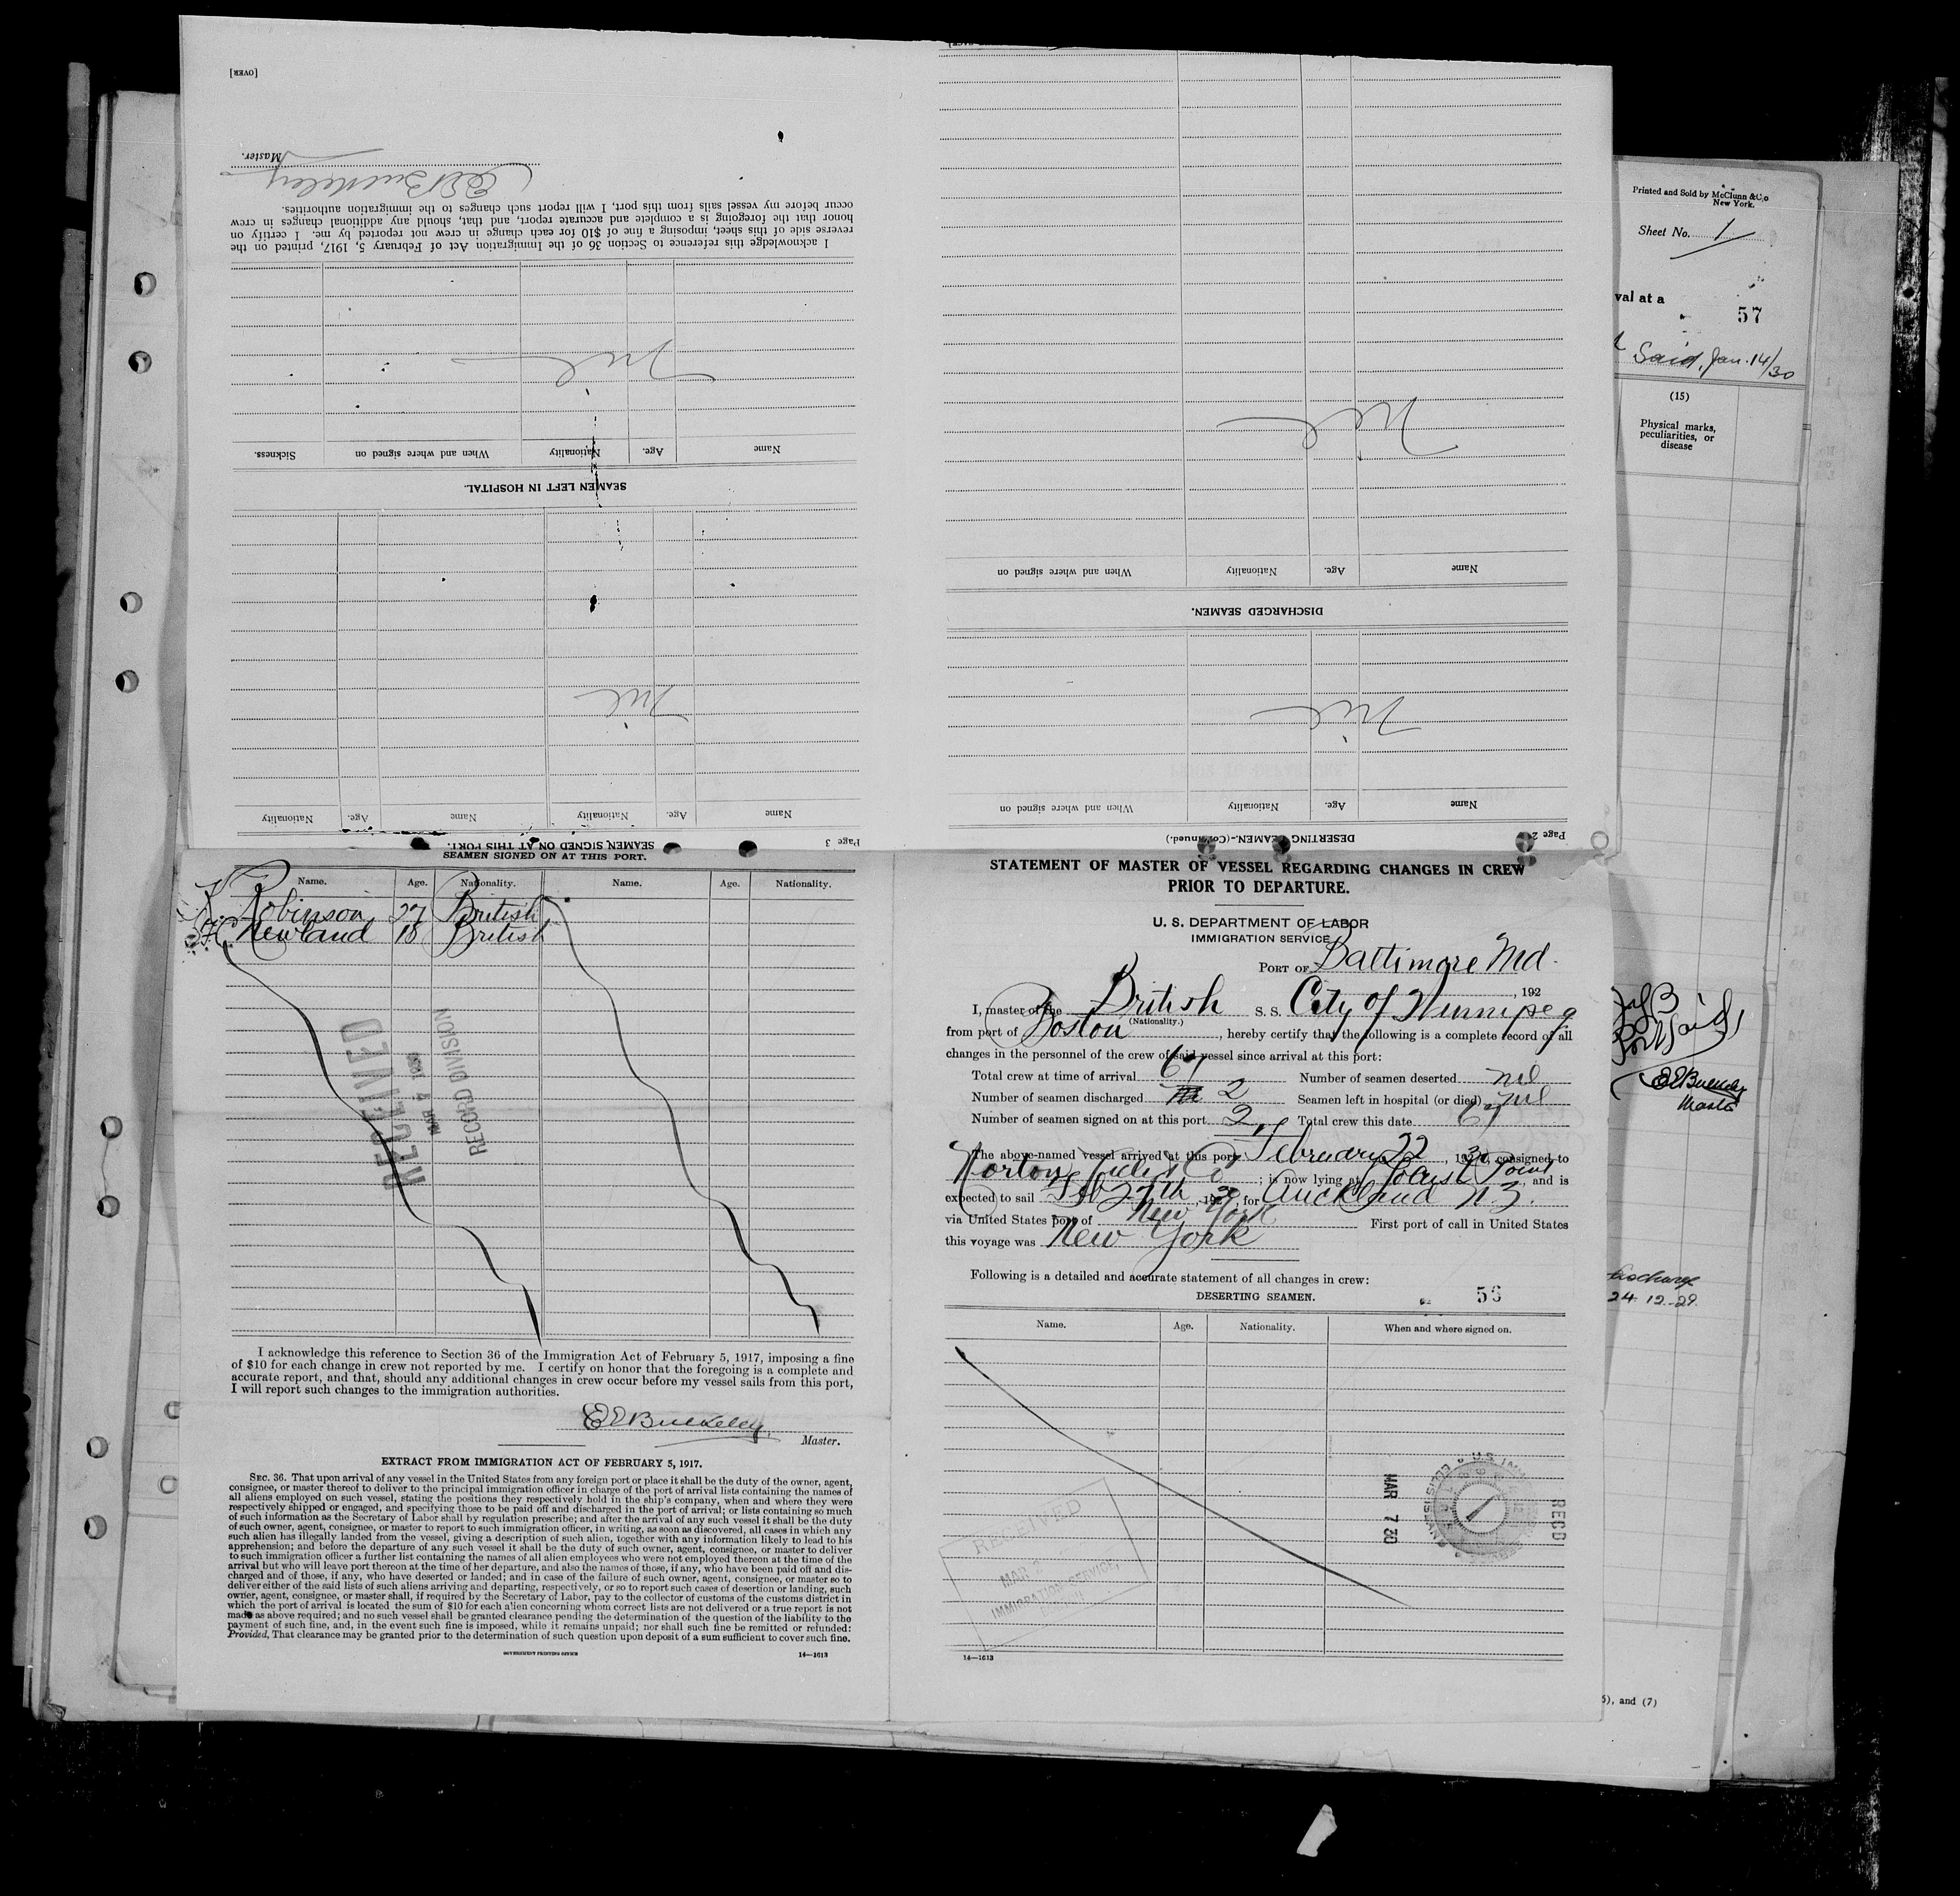 [OVER]
Master.
EEBuckeley
I acknowledge this reference to Section 36 of the Immigration Act of February 5, 1917, printed on the
reverse side of this sheet, imposing a fine of $10 for each change in crew not reported by me. I certify on
honor that the foregoing is a complete and accurate report, and that, should any additional changes in crew
occur before my vessel sails from this port, I will report such changes to the immigration authorities.
nil
Name Age. Nationality When and where signed on Sickness.
SEAMEN LEFT IN HOSPITAL.
nil
Name Age. Nationality Name Age. Nationality
Page 3 SEAMEN SIGNED ON AT THIS PORT.
nil
Name Age. Nationality When and where signed on
DISCHARGED SEAMEN.
nil
Name Age. Nationality When and where signed on
Page 2 DESERTING SEAMEN—(Continued.)
SEAMEN SIGNED ON AT THIS PORT.
Name. Age. Nationality. Name. Age. Nationality.
Robinson 27 British
Newland 18 British
RECEIVED
MAR 4 1930
RECORD DIVISION
I acknowledge this reference to Section 36 of the Immigration Act of February 5, 1917, imposing a fine
of $10 for each change in crew not reported by me. I certify on honor that the foregoing is a complete and
accurate report, and that, should any additional changes in crew occur before my vessel sails from this port,
I will report such changes to the immigration authorities.
EEBuckeley
Master.
EXTRACT FROM IMMIGRATION ACT OF FEBRUARY 5, 1917.
SEC. 36. That upon arrival of any vessel in the United States from any foreign port or place it shall be the duty of the owner, agent,
consignee, or master thereof to deliver to the principal immigration officer in charge of the port of arrival lists containing the names of
all aliens employed on such vessel, stating the positions they respectively hold in the ship's company, when and where they were
respectively shipped or engaged, and specifying those to be paid off and discharged in the port of arrival; or lists containing so much
of such information as the Secretary of Labor shall by regulation prescribe; and after the arrival of any such vessel it shall be the duty
of such owner, agent, consignee, or master to report to such immigration officer, in writing, as soon as discovered, all cases in which any
such alien has illegally landed from the vessel, giving a description of such alien, together with any information likely to lead to his
apprehension; and before the departure of any such vessel it shall be the duty of such owner, agent, consignee, or master to deliver
to such immigration officer a further list containing the names of all alien employees who were not employed thereon at the time of the
arrival but who will leave port thereon at the time of her departure, and also the names of those, if any, who have been paid off and dis-
charged and of those, if any, who have deserted or landed; and in case of the failure of such owner, agent, consignee, or master so to
deliver either of the said lists of such aliens arriving and departing, respectively, or so to report such cases of desertion or landing, such
owner, agent, consignee, or master shall, if required by the Secretary of Labor, pay to the collector of customs of the customs district in
which the port of arrival is located the sum of $10 for each alien concerning whom correct lists are not delivered or a true report is not
made as above required; and no such vessel shall be granted clearance pending the determination of the question of the liability to the
payment of such fine, and, in the event such fine is imposed, while it remains unpaid; nor shall such fine be remitted or refunded:
Provided, That clearance may be granted prior to the determination of such question upon deposit of a sum sufficient to cover such fine.
GOVERNMENT PRINTING OFFICE 14—1613
STATEMENT OF MASTER OF VESSEL REGARDING CHANGES IN CREW
PRIOR TO DEPARTURE.
U. S. DEPARTMENT OF LABOR
IMMIGRATION SERVICE
PORT OF Baltimore Md.
, 192
I, master of the British S. S. City of Winnipeg
(Nationality.)
from port of Boston, hereby certify that the following is a complete record of all
changes in the personnel of the crew of said vessel since arrival at this port:
Total crew at time of arrival 67 Number of seamen deserted nil
Number of seamen discharged 2 Seamen left in hospital (or died) nil
Number of seamen signed on at this port 2 Total crew this date 67
The above-named vessel arrived at this port February 22, 1930, consigned to
Norton Lilly Co; is now lying at Locust Point, and is
expected to sail Feb 27th, 1930, for Auckland N Z.
via United States port of New York First port of call in United States
this voyage was New York
Following is a detailed and accurate statement of all changes in crew:
DESERTING SEAMEN. 56
Name. Age. Nationality. When and where signed on.
RECEIVED
MAR
IMMIGRATION SERVICE,
MAR 7 30
RECD
14—1613
Printed and Sold by McClunn & Co
New York.
Sheet No. 1
val at a
57
Said, Jan. 14/30
(15)
Physical marks,
peculiarities, or
disease
EEBuckeley
Master
Discharge
24.12.29
6), and (7)